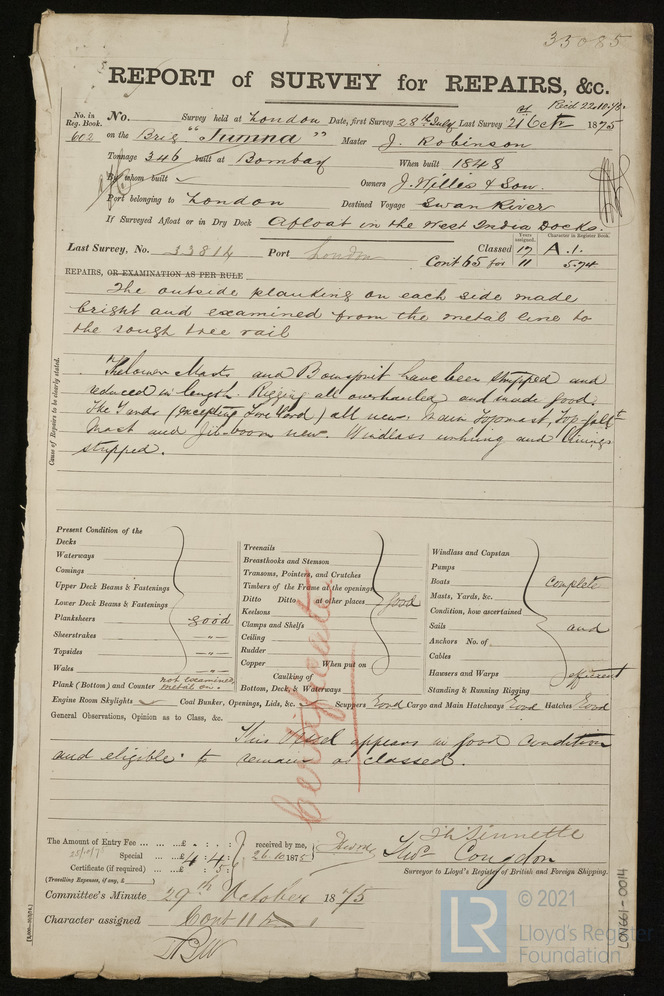 33085
REPORT of SURVEY for REPAIRS, &c.
Recd 22.10.75
No. in Reg. Book. No. Survey held at London Date, first Survey 28th July Last Survey 21st Octr 1875
602 on the Brig "Jumna" Master J. Robinson
Tonnage 346 built at Bombay When built 1848
By whom built Owners J. Willis & Son.
Port belonging to London Destined Voyage Swan River
If Surveyed Afloat or in Dry Dock Afloat in the West India Docks.
Years assigned. Character in Register Book.
Last Survey, No. 33814 Port London Classed 17 A.1.
Cont 65 for 11 5.74
REPAIRS, OR EXAMINATION AS PER RULE
The outside planking on each side made
bright and examined from the metal line to
the rough tree rail
Cause of Repairs to be clearly stated.
The lower Masts and Bowsprit have been stripped and
reduced in length. Rigging all overhauled and made good.
The Yards (excepting Fore Yard) all new. Main Topmast, Top-gallt
Mast and Jib-boom new. Windlass unhung and linings
stripped.
Present Condition of the
Decks
Waterways
Comings
Upper Deck Beams & Fastenings
Lower Deck Beams & Fastenings
Planksheers good
Sheerstrakes -"-
Topsides -"-
Wales -"-
Plank (Bottom) and Counter not examined, metal on.
Treenails
Breasthooks and Stemson
Transoms, Pointers, and Crutches
Timbers of the Frame at the openings
Ditto Ditto at other places good
Keelsons
Clamps and Shelfs
Ceiling
Rudder
Copper When put on
Caulking of
Bottom, Deck, & Waterways
Windlass and Capstan
Pumps
Boats complete
Masts, Yards, &c.
Condition, how ascertained
Sails and
Anchors No. of
Cables
Hawsers and Warps efficient
Standing & Running Rigging
Certificate
Engine Room Skylights Coal Bunker, Openings, Lids, &c. Scuppers Good Cargo and Main Hatchways Good Hatches Good
General Observations, Opinion as to Class, &c.
This Vessel appears in good condition
and eligible to remain as classed.
The Amount of Entry Fee ... ... ...£ : :
Special ... ...£4 : 4 : received by me,
26.10.1875
Certificate (if required) ... ...£ : 5 :
(Travelling Expenses, if any, £ )
Congdon
Surveyor to Lloyd's Register of British and Foreign Shipping.
Committee's Minute 29th October 1875
Character assigned Cont 11
© 2021
LR
Lloyd's Register
Foundation
LON661-0014